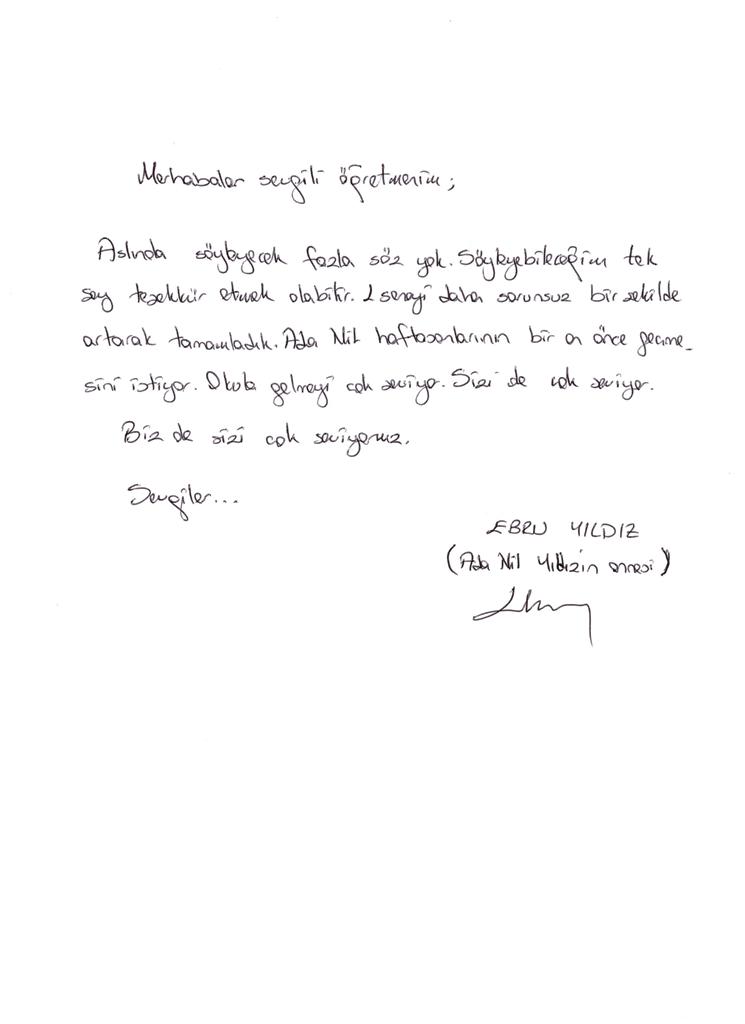 Merhabalar sevgili öğretmenim;
Aslında söyleyecek fazla söz yok. Söyleyebileceğim tek
şey teşekkür etmek olabilir. 1 seneyi daha sorunsuz bir şekilde
artarak tamamladık. Ada Nil haftasonlarının bir an önce geçme_
sini istiyor. Okula gelmeyi çok seviyor. Sizi de çok seviyor.
Biz de sizi çok seviyoruz.
Sevgiler...
EBRU YILDIZ
(Ada Nil Yıldızın annesi)